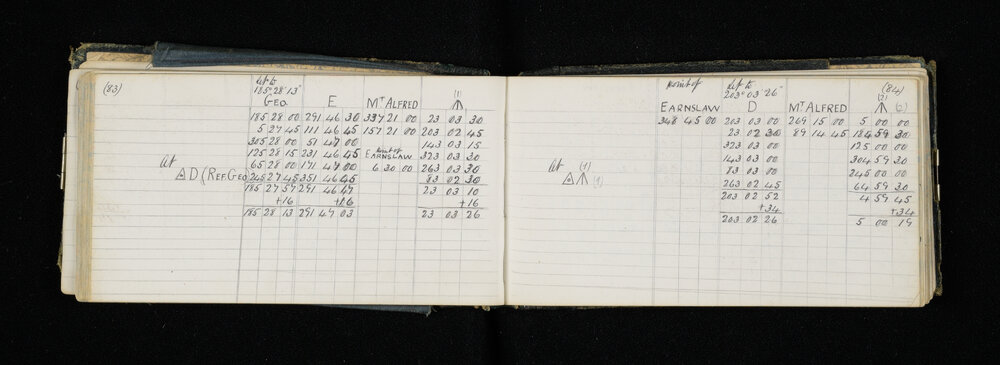 (83)
Set to
185° 28' 13"
Geo E Mᵀ ALFRED (1)
185 28 00 291 46 30 337 21 00 23 03 30
5 27 45 111 46 45 157 21 00 203 02 45
305 28 00 51 47 00 143 03 15
125 28 15 231 46 45 Point of EARNSLAW 323 03 30
At 65 28 00 171 47 00 6 30 00 263 03 30
D (Ref. Geo) 245 27 45 351 46 45 83 02 30
185 27 57 291 46 47 23 03 10
+16 +16 +16
185 28 13 291 47 03 23 03 26
(84)
Point of Set to
203° 03' 26"
EARNSLAW D Mᵀ ALFRED (2)
348 45 00 203 03 00 269 15 00 5 00 00
23 02 30 89 14 45 184 59 30
323 03 00 125 00 00
143 03 00 304 59 30
At (1) 83 03 00 245 00 00
263 02 45 64 59 30
203 02 52 4 59 45
+34 +34
203 02 26 5 00 19